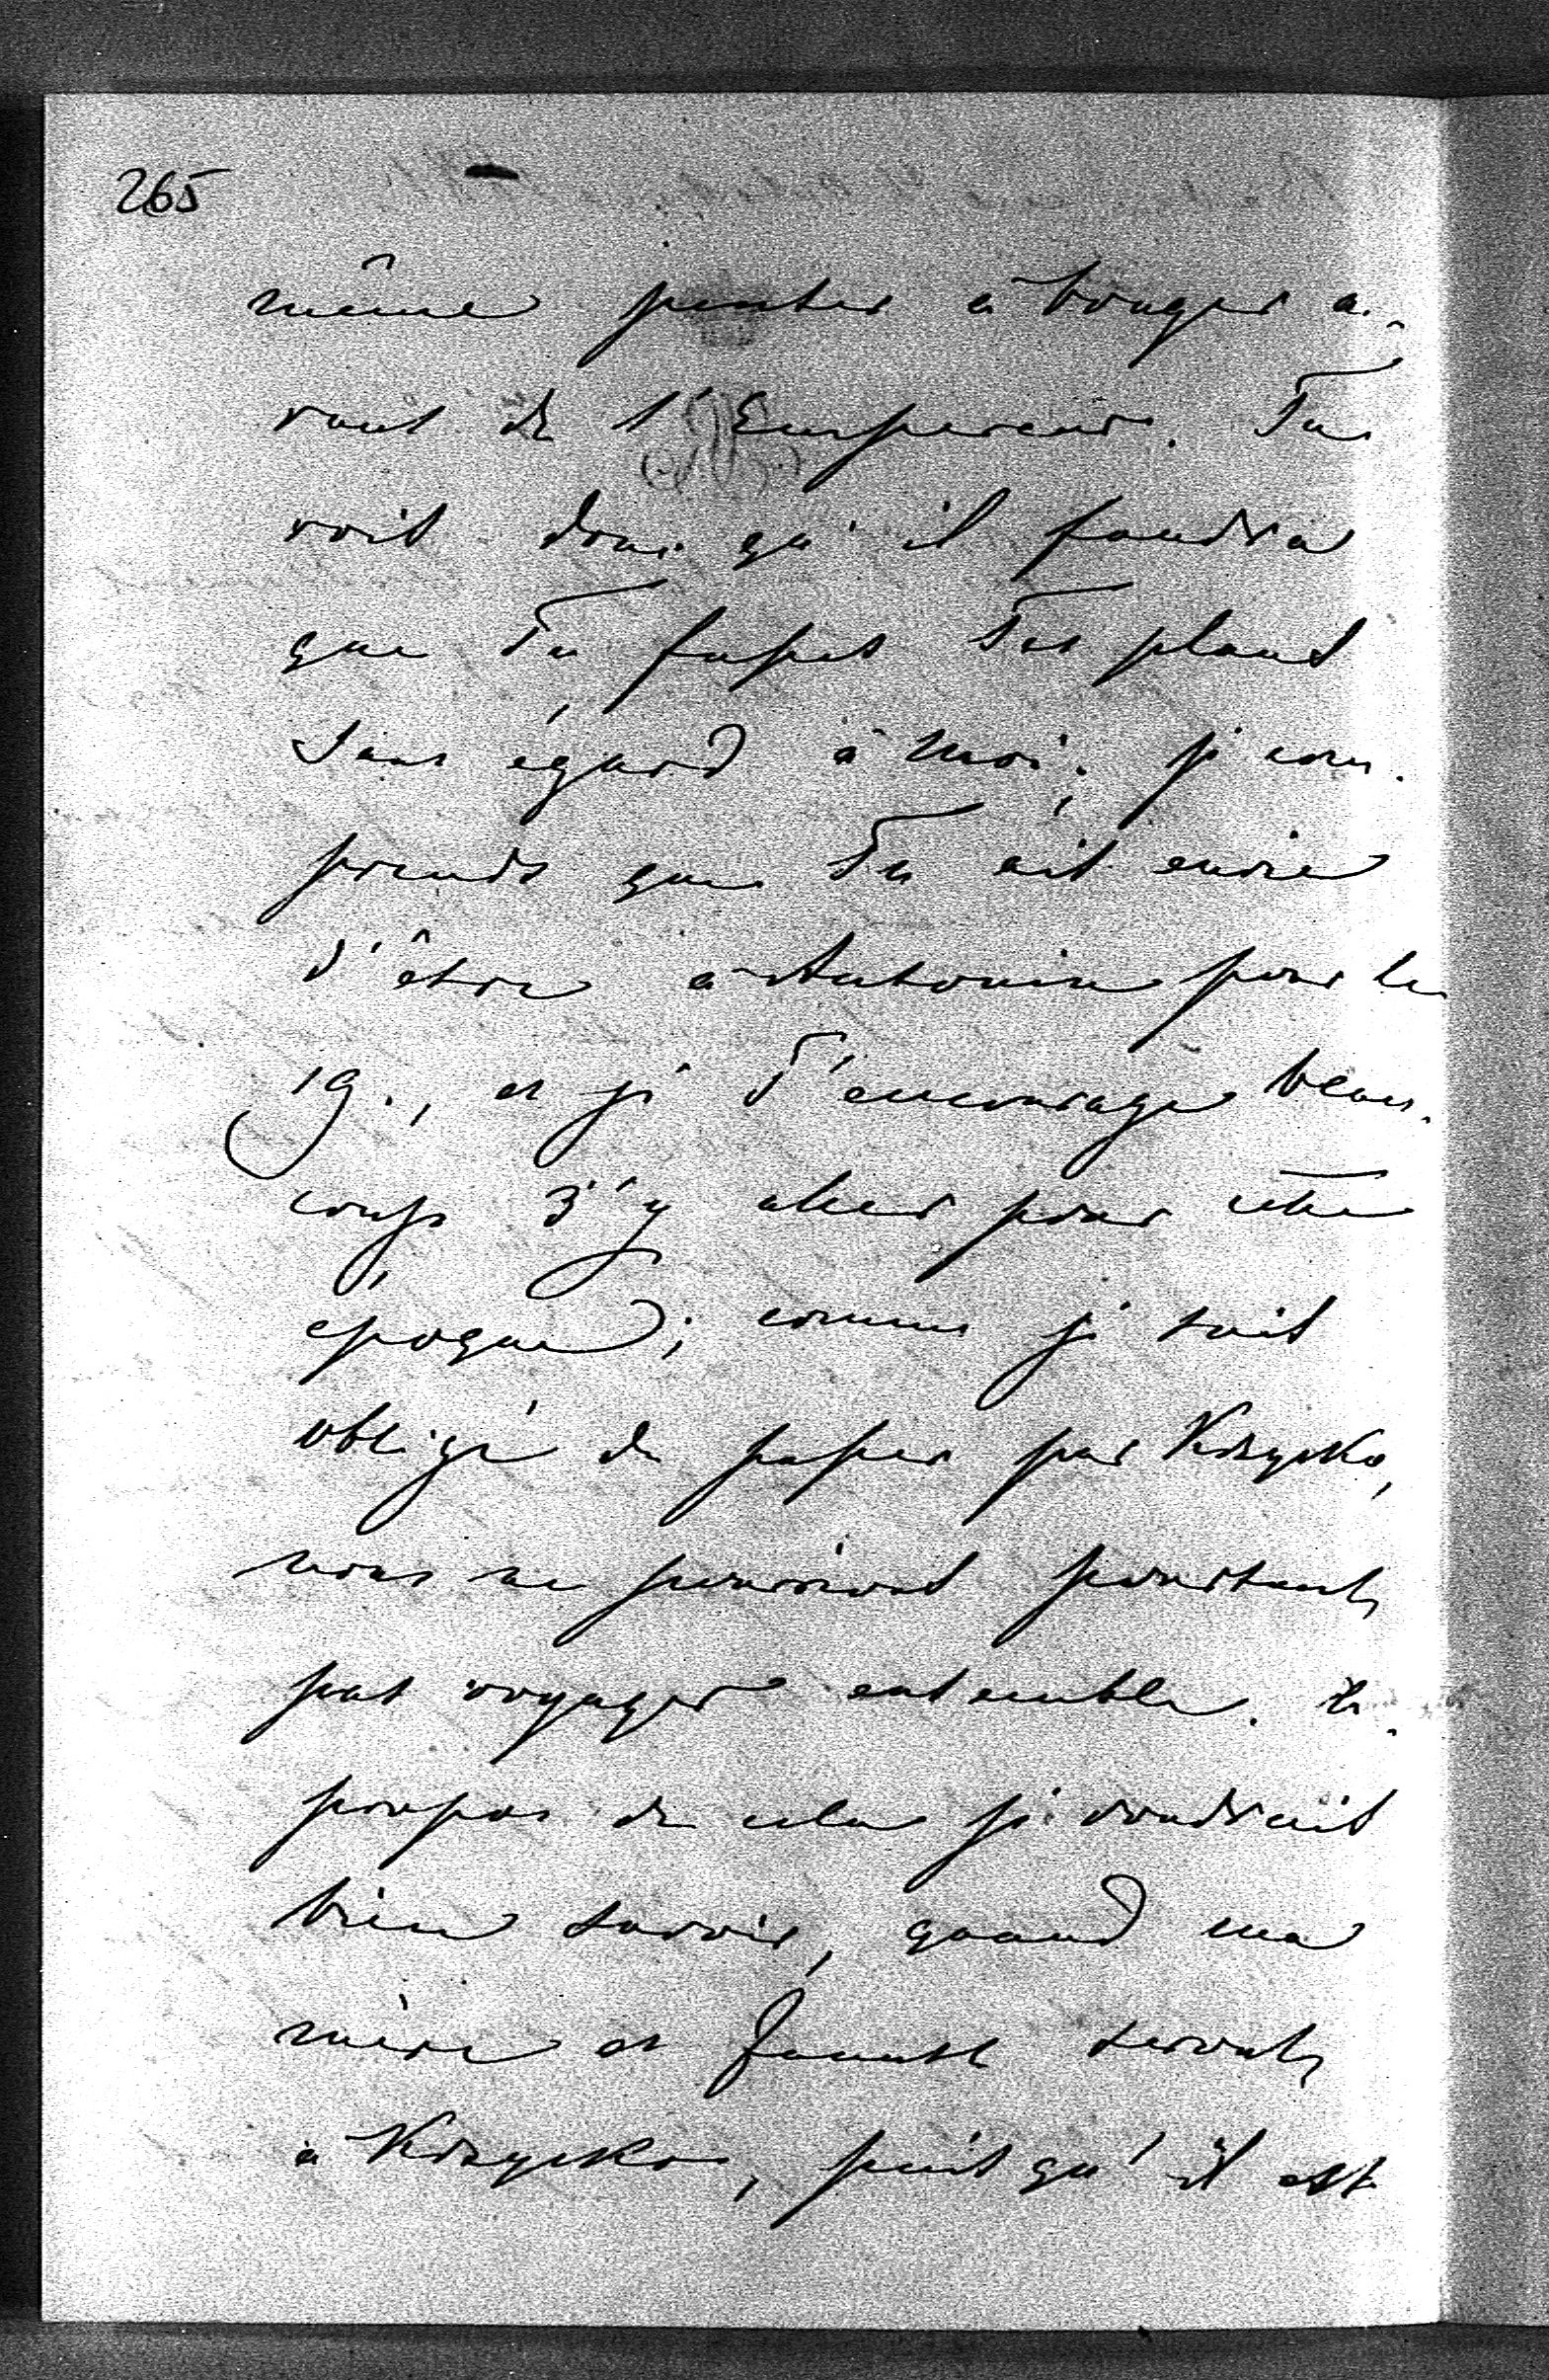 265
même penser à bouger a-
vant de l'Empereur. Tu
vois donc qu'il faudra
que Tu fasses Tes plans
sans égard à moi; je com-
prends que Tu ais envie
d'être à Antonin pour le
19., et je T'encourage beau-
coup d'y aller pour cette
époque; comme je suis
obligé de passer par Krzycko,
nous ne pourrions pourtant
pas voyager ensemble. A
propos de cela je voudrais
bien savoir, quand ma
mère et seront
à Krzycko, puis qu'il est